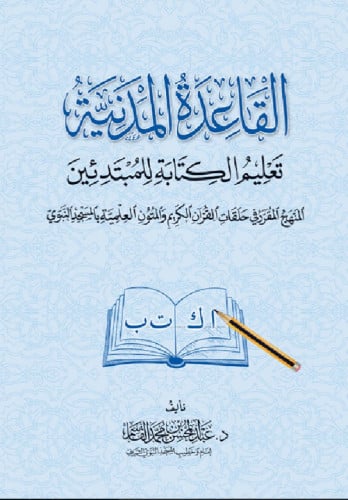 القَاعِدَةُ المَدَنِيَّةُ
تَعْلِيمُ الكِتَابَةِ لِلْمُبْتَدِئِينَ
المَنْهَجُ المُقَرَّرُ فِي حَلَقَاتِ القُرْآنِ الكَرِيمِ وَالمُتُونِ العِلْمِيَّةِ بِالمَسْجِدِ النَّبَوِيِّ
ا ك ت ب
تأليف
د. عبد المحسن بن محمد القاسم
إمام وخطيب المسجد النبوي الشريف